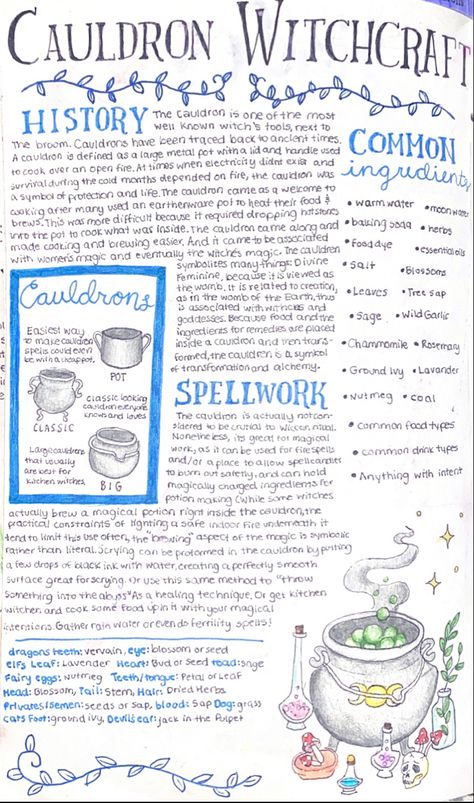 CAULDRON WITCHCRAFT
HISTORY
The Cauldron is one of the most
well known witch's tools, next to
the broom. Cauldrons have been traced back to ancient times.
A cauldron is defined as a large metal pot with a lid and handle used
to cook over an open fire. At times when electricity didnt exist and
survival during the cold months depended on fire, the cauldron was
a symbol of protection and life. The cauldron came as a welcome to
cooking after many used an earthenware pot to heat their food &
brews. This was more difficult because it required dropping hot stones
into the pot to cook what was inside. The cauldron came along and
made cooking and brewing easier. And it came to be associated
with women's magic and eventually the witches magic. The cauldron
symbolises many things: Divine
Feminine, because it is viewed as
the womb. It is related to creation,
as in the womb of the Earth, thus
is associated with witches and
goddesses. Because food and the
ingredients for remedies are placed
inside a cauldron and then trans-
formed, the cauldren is a symbol
of transformation and alchemy.
Cauldrons
Easiest way
to make cauldron
spells could even
be with a cheap pot.
POT
CLASSIC
classic looking
cauldron everyone
knows and loves
Large cauldrons
that usually
are best for
kitchen witches
BIG
SPELLWORK
The cauldron is actually not con-
sidered to be crucial to Wiccan ritual.
Nonetheless, its great for magical
work, as it can be used for fire spells
and/or a place to allow spell candles
to burn out safetly, and can hold
magically charged ingredients for
potion making (While some witches
actually brew a magical potion right inside the cauldron, the
practical constraints of lighting a safe indoor fire underneath it
tend to limit this use often, the "brewing" aspect of the magic is symbolic
rather than literal. Scrying can be preformed in the cauldron by putting
a few drops of black ink with water, creating a perfectly smooth
surface great for scrying. Or use this same method to "throw
something into the abyss" As a healing technique. Or get kitchen
witchen and cook some food up in it with your magical
intentions. Gather rain water or even do fertility spells!
dragons teeth: vervain, eye: blossom or seed
Elfs Leaf: Lavender Heart: Bud or Seed toad: sage
Fairy eggs: Nutmeg Teeth/tongue: Petal or Leaf
Head: Blossom, Tail: Stem, Hair: Dried Herbs
Privates/Semen: seeds or sap, blood: Sap Dog: grass
Cats Foot: ground ivy, Devils ear: jack in the Pulpet
COMMON
ingredients
• warm water • moon water
• baking soda • herbs
• food dye • essential oils
• Salt • Blossoms
• Leaves • Tree sap
• Sage • Wild Garlic
• Chammomile • Rosemary
• Ground Ivy • Lavander
• nutmeg • coal
• common food types
• common drink types
• Anything with intent